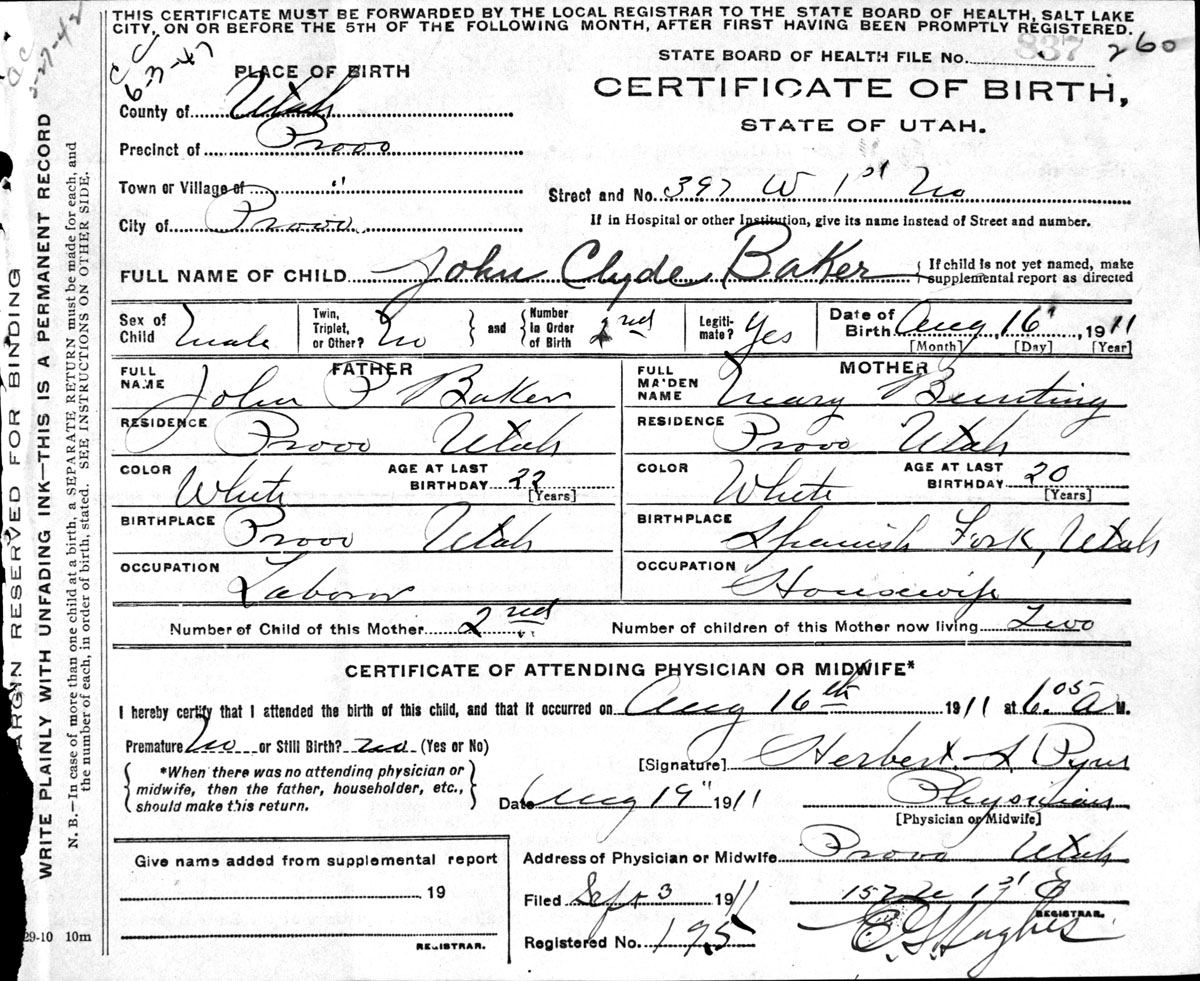 THIS CERTIFICATE MUST BE FORWARDED BY THE LOCAL REGISTRAR TO THE STATE BOARD OF HEALTH, SALT LAKE
CITY, ON OR BEFORE THE 5TH OF THE FOLLOWING MONTH, AFTER FIRST HAVING BEEN PROMPTLY REGISTERED.
STATE BOARD OF HEALTH FILE No. 837 260
CC 6-27-47
PLACE OF BIRTH
CERTIFICATE OF BIRTH,
STATE OF UTAH.
County of Utah
Precinct of Provo
Town or Village of "
Street and No. 397 W 1st No
City of Provo
If in Hospital or other Institution, give its name instead of Street and number.
FULL NAME OF CHILD John Clyde Baker { If child is not yet named, make supplemental report as directed
Sex of Child Male Twin, Triplet, or Other? No } and { Number in Order of Birth 2nd Legiti-mate? Yes Date of Birth Aug 16" 1911
[Month] [Day] [Year]
FATHER MOTHER
FULL NAME John P Baker FULL MAIDEN NAME Mary Bunting
RESIDENCE Provo Utah RESIDENCE Provo Utah
COLOR White AGE AT LAST BIRTHDAY 22 [Years] COLOR White AGE AT LAST BIRTHDAY 20 [Years]
BIRTHPLACE Provo Utah BIRTHPLACE Spanish Fork, Utah
OCCUPATION Laborer OCCUPATION Housewife
Number of Child of this Mother 2nd Number of children of this Mother now living Two
CERTIFICATE OF ATTENDING PHYSICIAN OR MIDWIFE*
I hereby certify that I attended the birth of this child, and that it occurred on Aug 16th 1911 at 6.05 A M.
Premature No or Still Birth? No (Yes or No)
[Signature] Herbert S Pyne
{ *When there was no attending physician or
midwife, then the father, householder, etc.,
should make this return. }
Date Aug 19" 1911 Physician
[Physician or Midwife]
Give name added from supplemental report
19
REGISTRAR.
Address of Physician or Midwife Provo Utah
Filed Sept 3 1911
REGISTRAR.
Registered No. 195 Hughes
29-10 10m
MARGIN RESERVED FOR BINDING
WRITE PLAINLY WITH UNFADING INK—THIS IS A PERMANENT RECORD
N. B.—In case of more than one child at a birth, a SEPARATE RETURN must be made for each, and
the number of each, in order of birth, stated. SEE INSTRUCTIONS ON OTHER SIDE.